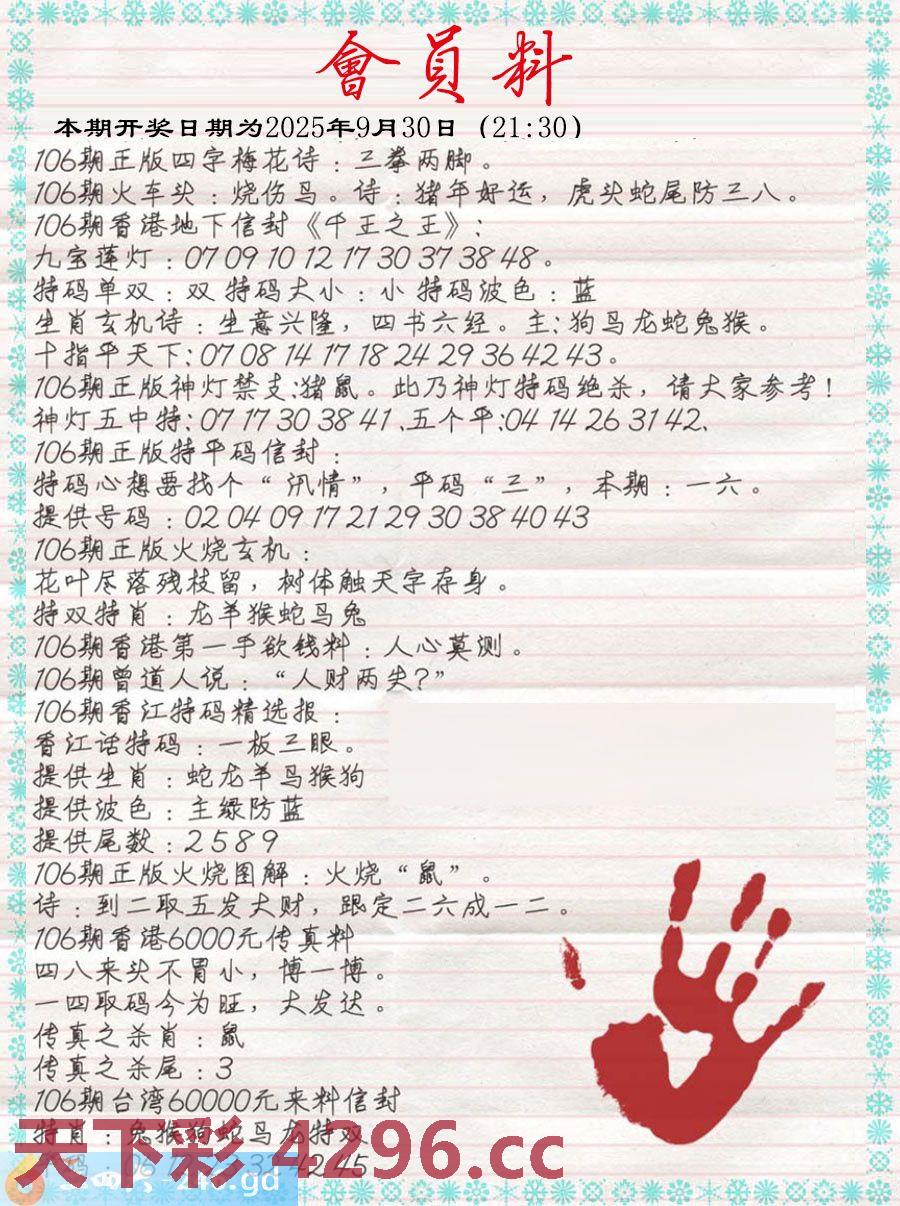 會員料
本期开奖日期为2025年9月30日（21:30）
106期正版四字梅花诗：三拳两脚。
106期火车头：烧伤鸟。诗：猪年好运，虎头蛇尾防三八。
106期香港地下信封《千王之王》：
九宝莲灯：07 09 10 12 17 30 37 38 48。
特码单双：双 特码大小：小 特码波色：蓝
生肖玄机诗：生意兴隆，四书六经。主：狗马龙蛇兔猴。
十指平天下：07 08 14 17 18 24 29 36 42 43。
106期正版神灯禁支：猪鼠。此乃神灯特码绝杀，请大家参考！
神灯五中特：07 17 30 38 41、五个平：04 14 26 31 42、
106期正版特平码信封：
特码心想要找个“汛情”，平码“三”，本期：一六。
提供号码：02 04 09 17 21 29 30 38 40 43
106期正版火烧玄机：
花叶尽落残枝留，树体触天字存身。
特双特肖：龙羊猴蛇马兔
106期香港第一手欲钱料：人心莫测。
106期曾道人说：“人财两失?”
106期香江特码精选报：
香江话特码：一板三眼。
提供生肖：蛇龙羊马猴狗
提供波色：主绿防蓝
提供尾数：2 5 8 9
106期正版火烧图解：火烧“鼠”。
诗：到二取五发大财，跟定二六成一二。
106期香港6000元传真料
四八来头不胃小，博一博。
一四取码今为旺，大发达。
传真之杀肖：鼠
传真之杀尾：3
106期台湾60000元来料信封
特肖：兔猴狗蛇马龙特双
天下彩 4296.cc
42 45